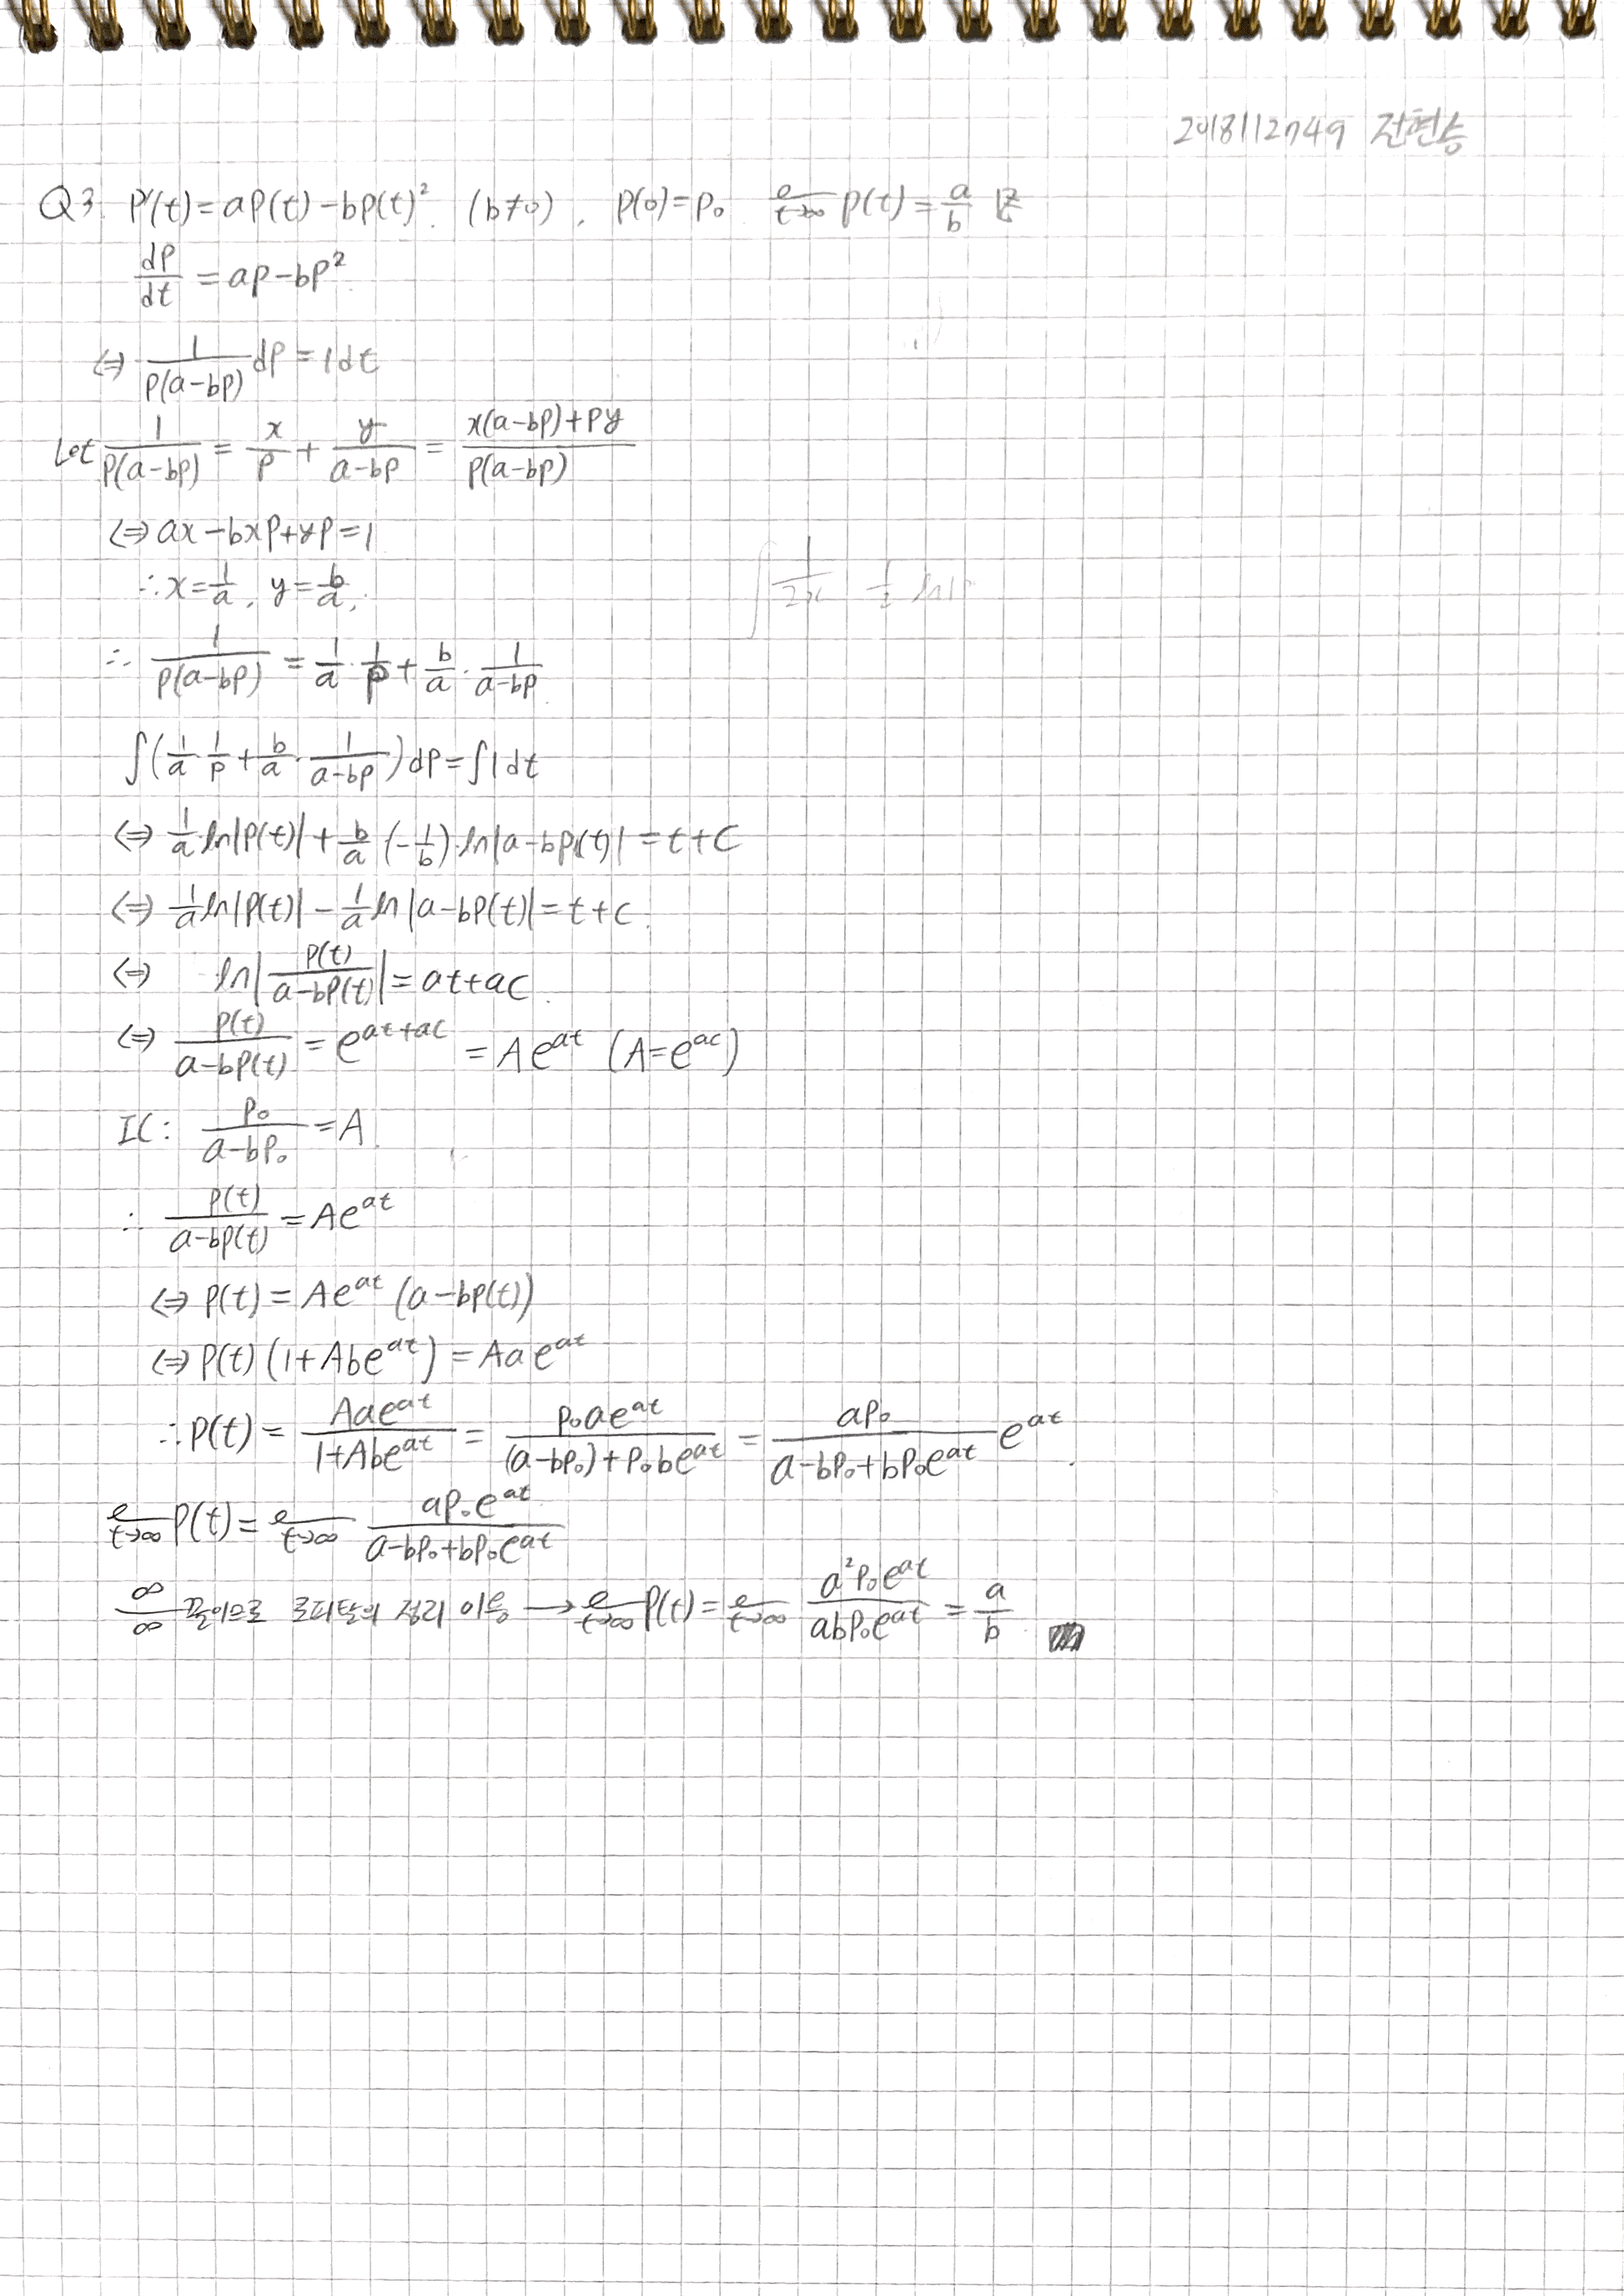 2018112749 전현승
Q3. P'(t) = aP(t) - bP(t)². (b≠0), P(0) = P₀ lim_{t→∞} P(t) = a/b
dP/dt = aP - bP²
⇔ 1/(P(a-bP)) dP = 1dt
Let 1/(P(a-bP)) = x/P + y/(a-bP) = (x(a-bP)+Py)/(P(a-bP))
⇔ ax - bxP + yP = 1
∴ x = 1/a, y = b/a.
∫ 1/2x 1/2 ln|
∴ 1/(P(a-bP)) = 1/a · 1/P + b/a · 1/(a-bP)
∫(1/a · 1/P + b/a · 1/(a-bP)) dP = ∫1dt
⇔ 1/a ln|P(t)| + b/a · (-1/b) · ln|a-bP(t)| = t+C
⇔ 1/a ln|P(t)| - 1/a ln|a-bP(t)| = t+C.
⇔ ln|P(t)/(a-bP(t))| = at+aC.
⇔ P(t)/(a-bP(t)) = e^{at+aC} = Ae^{at} (A=e^{aC})
IC: P₀/(a-bP₀) = A.
∴ P(t)/(a-bP(t)) = Ae^{at}
⇔ P(t) = Ae^{at} (a-bP(t))
⇔ P(t) (1+Abe^{at}) = Aae^{at}
∴ P(t) = Aae^{at}/(1+Abe^{at}) = P₀ae^{at}/((a-bP₀)+P₀be^{at}) = aP₀/(a-bP₀+bP₀e^{at}) e^{at}.
lim_{t→∞} P(t) = lim_{t→∞} aP₀e^{at}/(a-bP₀+bP₀e^{at})
∞/∞ 꼴이므로 로피탈의 정리 이용 → lim_{t→∞} P(t) = lim_{t→∞} a²P₀e^{at}/(abP₀e^{at}) = a/b